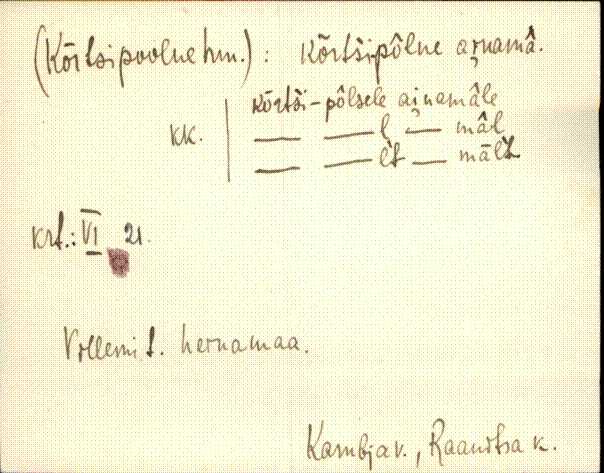 (Kõrtsipoolne hm.): kõrtsipôlne ai̯namâ.
kõrtsi-pôlsele ai̯namâle
kk. — — l — mâl
— — lt — mält
krt.: VI 21.
Villemi t. heinamaa.
Kambja v., Raanitsa k.